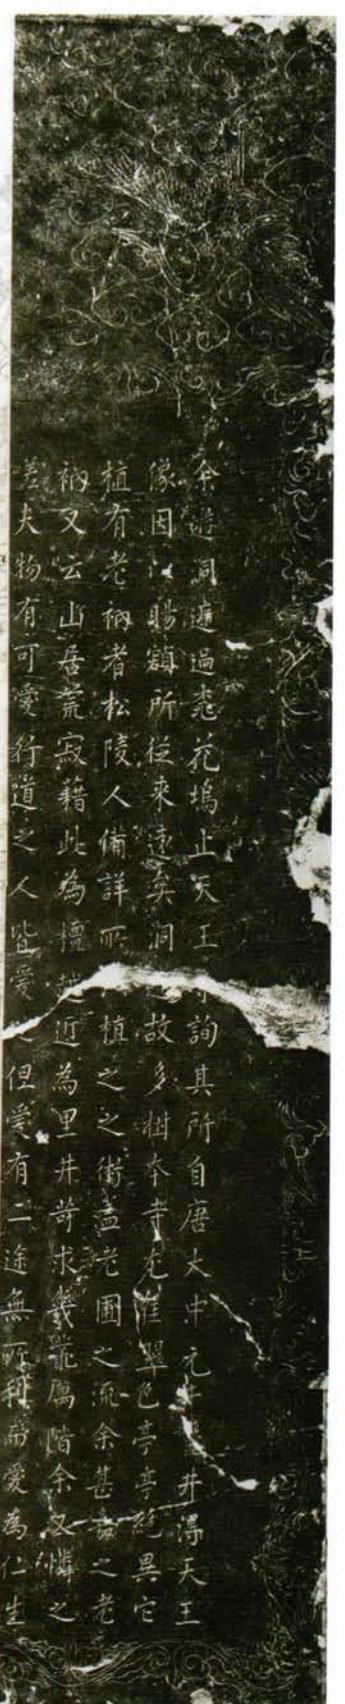 余遊洞庭過花塢止天王寺詢其所自唐大中元年井得天王
像因以賜額所從來遠矣洞故多柑本寺尤翠色亭亭絕異它
植有老衲者松陵人備詳所植之之術盖老圃之流余甚之老
衲又云山居荒寂藉此為檀越近為里井苛求幾厲階余又憐之
差夫物有可愛行道之人皆愛之但愛有二途無所利而愛為仁生